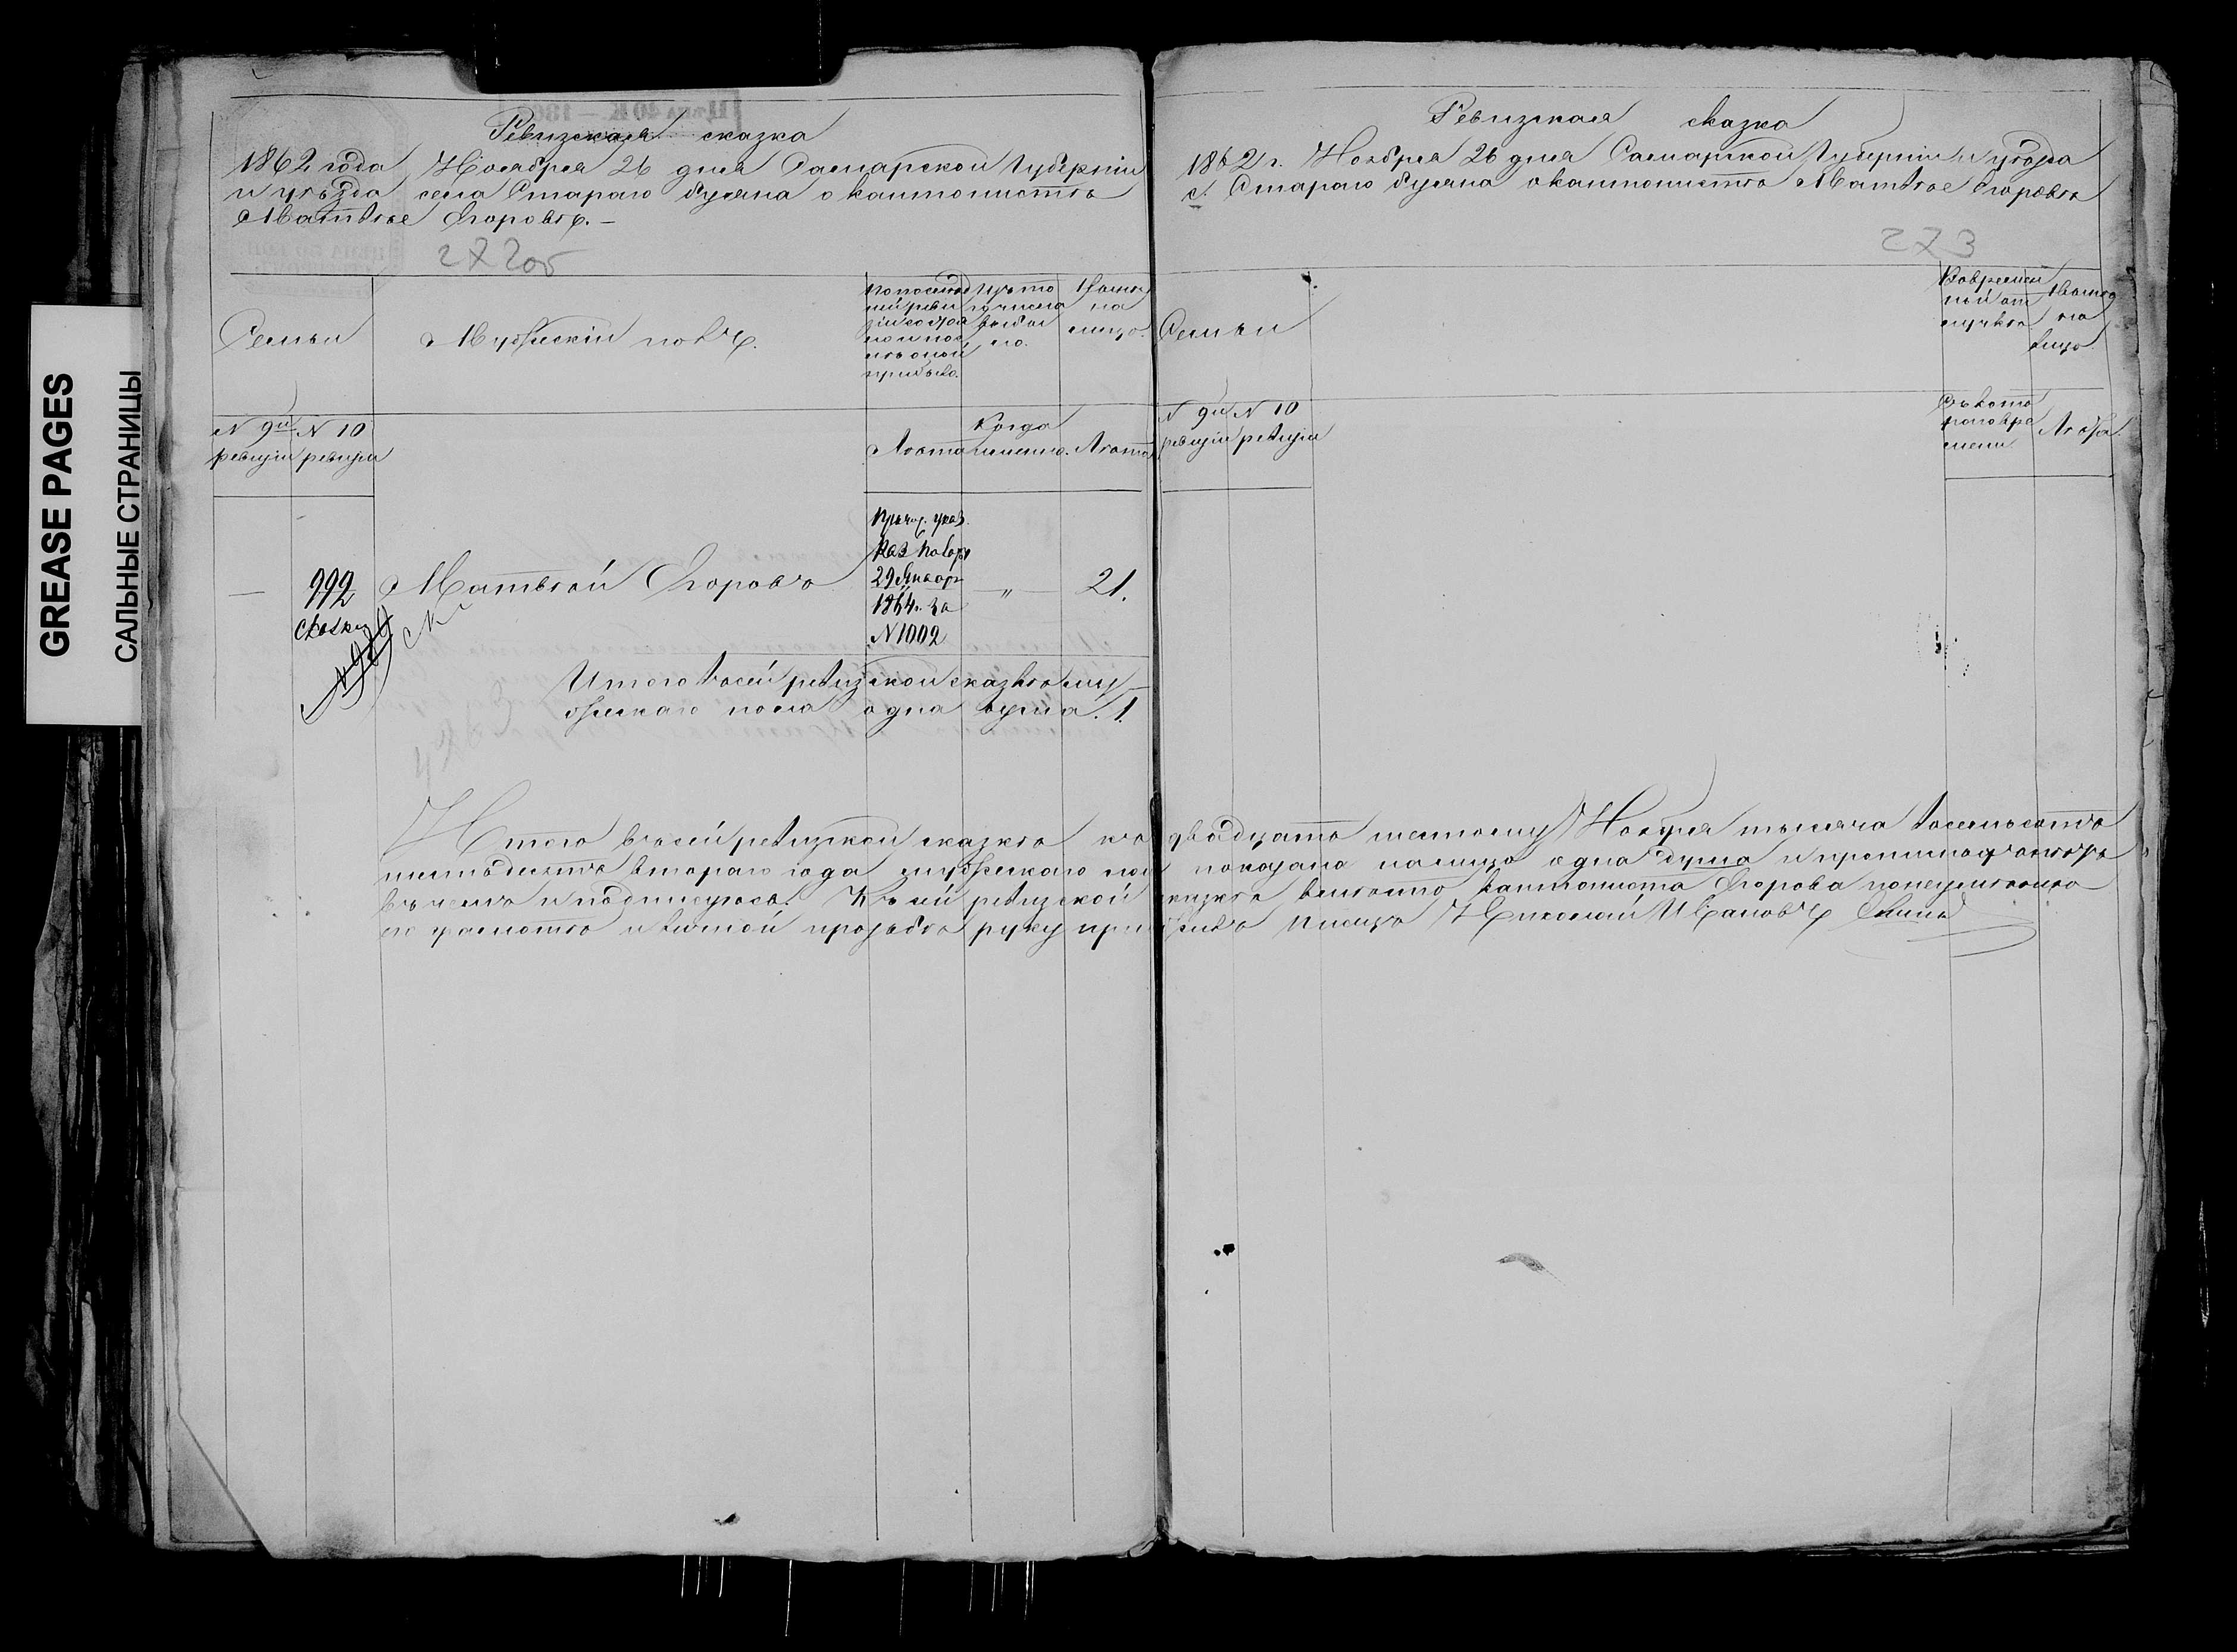 GREASE PAGES
САЛЬНЫЕ СТРАНИЦЫ
Ревизская сказка
1862 года Ноября 26 дня Самарской Губернiи
и уѣзда села Стараго Буяна о кантонистѣ
Матвѣе Егоровѣ. –
272об
Семьи
Мужескiй полъ.
По послѣд
ней реви
зiи состоя
ло и пос
лѣ оной
прибыло.
Изъ то
го числа
выбы
ло.
Нынѣ
на
лицо.
N 9й N 10
ревизiи ревизiи
Лѣта
Когда
именно.
Лѣта
992
Сказки
Матвѣй Егоровъ
Причис. указ.
Каз. Палаты
29 Января
1864 г. за
N 1002
„
21.
Итого въ сей ревизской сказкѣ му
жескаго пола одна душа. 1.
Ревизская сказка
1862 г. Ноября 26 дня Самарской Губернiи и уѣзда
с. Стараго Буяна о кантонистѣ Матвѣе Егоровѣ
273
Семьи
Во времен
ной от
лучкѣ
Нынѣ
на
лицо.
N 9й N 10
ревизiи ревизiи
Съ кото
раго вре
мени
Лѣта.
Итого въ сей ревизской сказкѣ къ двадцать шестому Ноября тысяча восемьсотъ
шестьдесятъ втораго года мужескаго пола показано на лицо одна душа и прописных
въ чемъ и подписуюсь. Къ сей ревизской сказкѣ вмѣсто кантониста Егорова по неумѣнiю
его грамотѣ и личной прозьбѣ руку приложилъ писецъ Николай Ивановъ